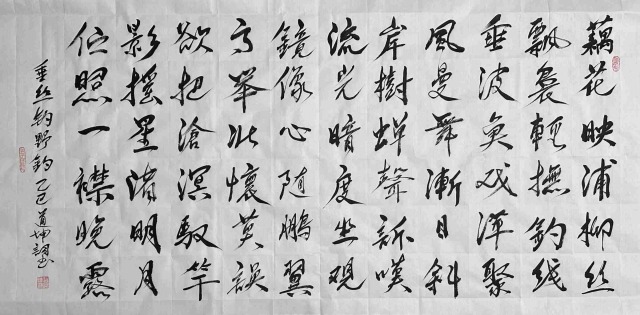 藕花映浦柳丝
飄裊輕撫釣线
垂波魚戏萍聚
風曼舞漸日斜
岸樹蝉聲訴嘆
流光暗度坐观
鏡像心随鵬翼
高举此懷莫誤
欲把滄溟馭竿
影摇星渚明月
低照一襟晚露
垂丝釣野釣乙巳道坤